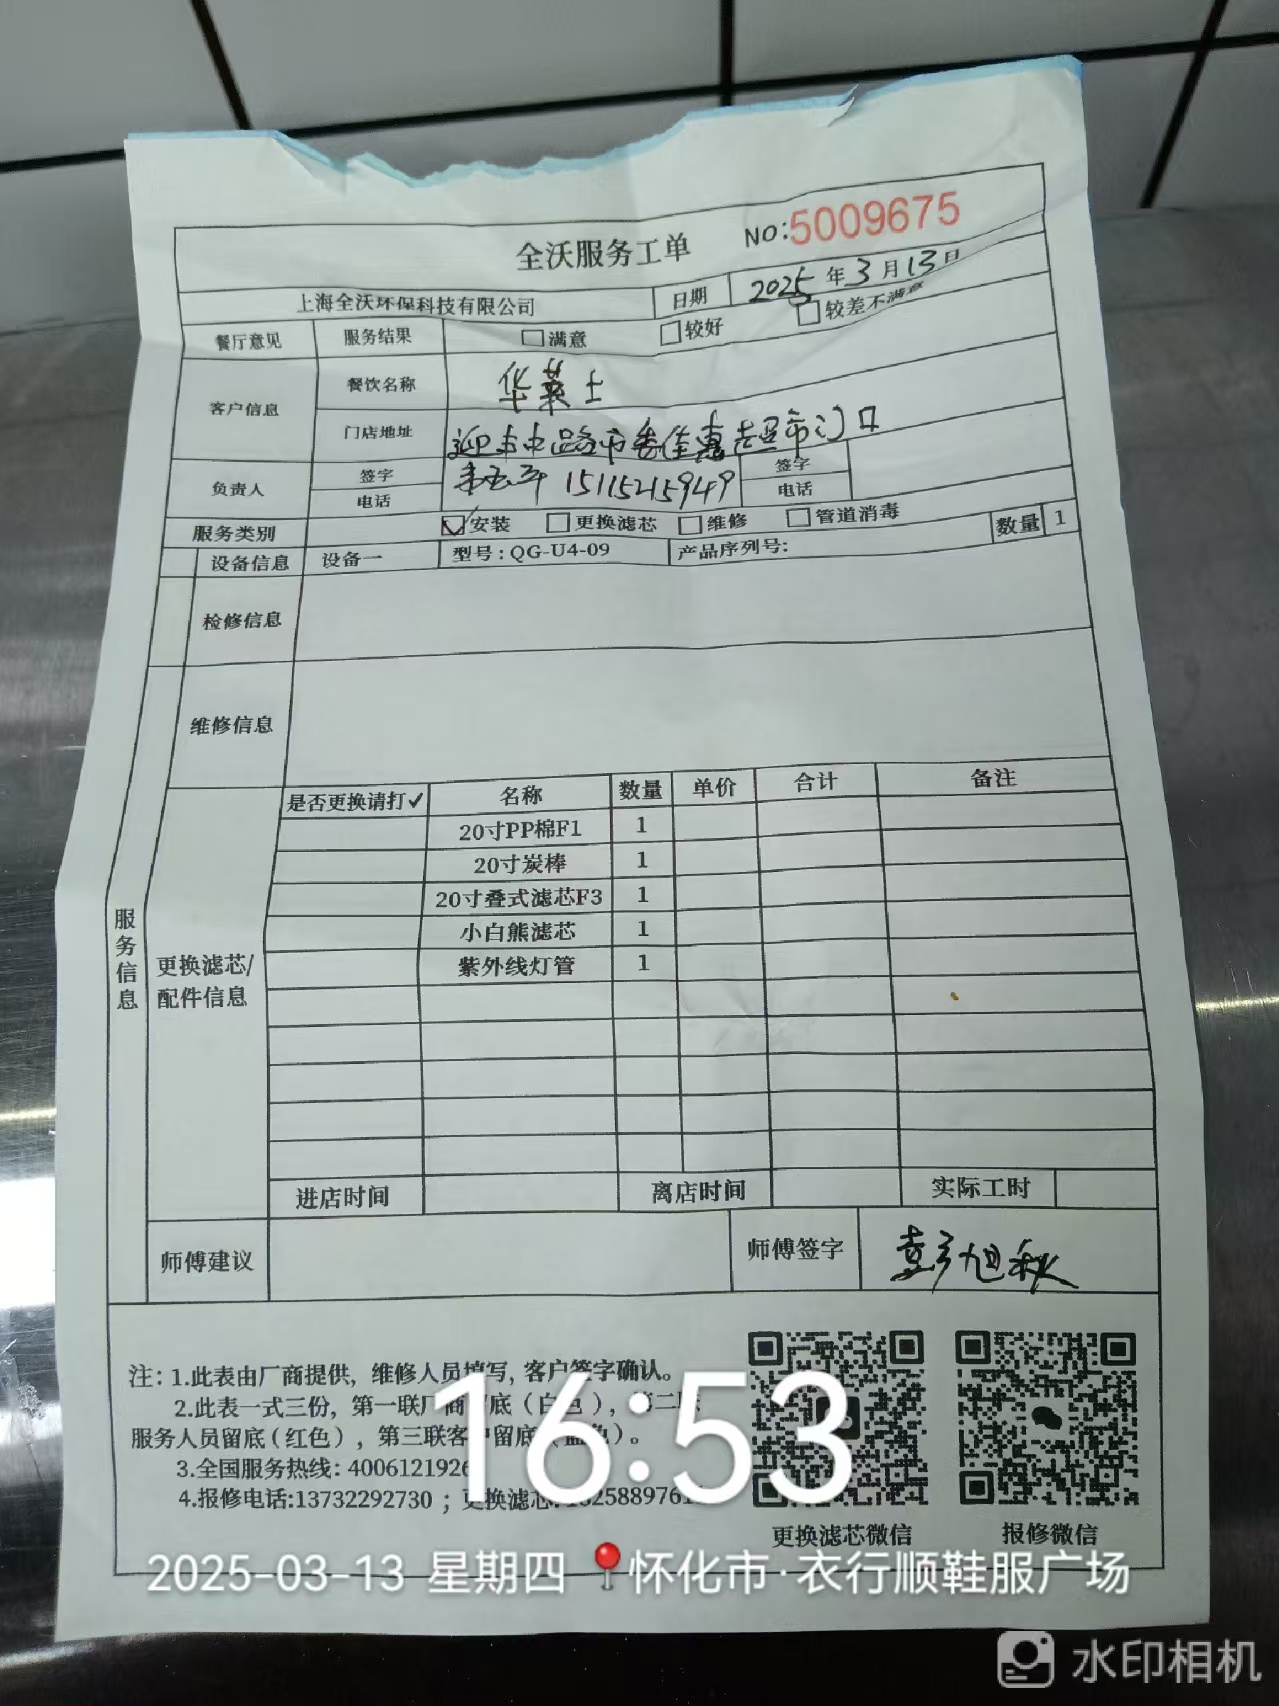 全沃服务工单
NO:5009675
上海全沃环保科技有限公司 日期 2025年3月13日
餐厅意见 服务结果 满意 较好 较差不满意
客户信息 餐饮名称 华莱士
门店地址 迎丰中路市委佳惠超市门口
负责人 签字 签字
电话 15115215949 电话
服务类别 安装 更换滤芯 维修 管道消毒
设备信息 设备一 型号:QG-U4-09 产品序列号: 数量 1
检修信息
维修信息
服务信息
更换滤芯/
配件信息
是否更换请打✓ 名称 数量 单价 合计 备注
20寸PP棉F1 1
20寸炭棒 1
20寸叠式滤芯F3 1
小白熊滤芯 1
紫外线灯管 1
进店时间 离店时间 实际工时
师傅建议 师傅签字 彭旭秋
注:1.此表由厂商提供,维修人员填写,客户签字确认。
2.此表一式三份,第一联厂商留底(白色),第二联
服务人员留底(红色),第三联客户留底(蓝色)。
3.全国服务热线:4006121926
4.报修电话:13732292730;更换滤芯:
更换滤芯微信 报修微信
16:53
2025-03-13 星期四 怀化市·衣行顺鞋服广场
水印相机